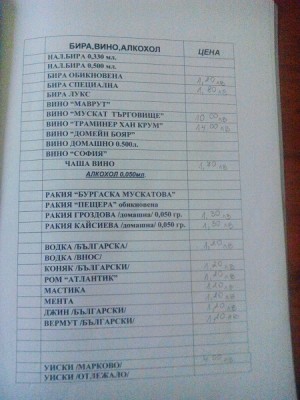 БИРА,ВИНО,АЛКОХОЛ ЦЕНА
НАЛ.БИРА 0,330 мл.
НАЛ.БИРА 0,500 мл.
БИРА ОБИКНОВЕНА
БИРА СПЕЦИАЛНА 1,20 лв
БИРА ЛУКС 1,80 лв
ВИНО "МАВРУТ"
ВИНО "МУСКАТ ТЪРГОВИЩЕ" 10.00 лв
ВИНО "ТРАМИНЕР ХАН КРУМ" 14.00 лв
ВИНО "ДОМЕЙН БОЯР"
ВИНО ДОМАШНО 0.500л.
ВИНО "СОФИЯ"
ЧАША ВИНО лв
АЛКОХОЛ 0,050мл.
РАКИЯ "БУРГАСКА МУСКАТОВА"
РАКИЯ "ПЕЩЕРА" обикновена
РАКИЯ ГРОЗДОВА /домашна/ 0,050 гр. 1,30 лв
РАКИЯ КАЙСИЕВА /домашна/ 0,050 гр. 1,30 лв
ВОДКА /БЪЛГАРСКА/ 1,20 лв
ВОДКА /ВНОС/
КОНЯК /БЪЛГАРСКИ/ 1,20 лв
РОМ "АТЛАНТИК" 1,10 лв
МАСТИКА 1,20 лв
МЕНТА 1,10 лв
ДЖИН /БЪЛГАРСКИ/ 1,10 лв
ВЕРМУТ /БЪЛГАРСКИ/ 1,10 лв
УИСКИ /МАРКОВО/ лв
УИСКИ /ОТЛЕЖАЛО/